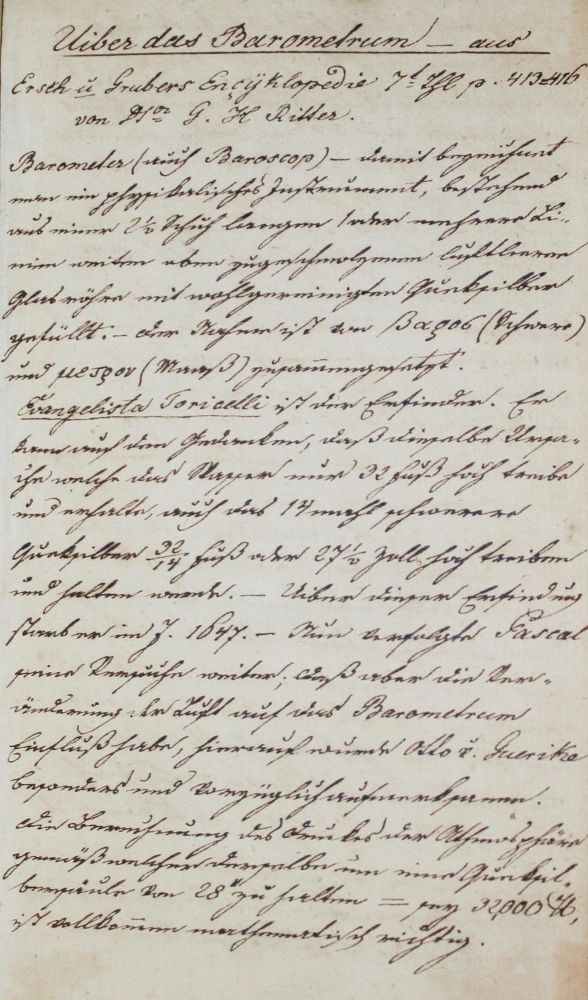 Uiber das Barometrum — aus
Ersch u Grubers Encÿklopedie 7t Thl p. 413-416
von Dor G. H Ritter.
Barometer (auch Baroscop) — damit bezeichnet
man ein physikalisches Instrument, bestehend
aus einer 2½ Schuh langen 1 oder mehrere Li-
nien weiten oben zugeschmolzenen luftleeren
Glasröhre mit wohlgereinigten Quecksilber
gefüllt. — Der Nahme ist von βαρος (Schwere)
und μετρον (Maaß) zusammengesetzt.
Evangelista Toricelli ist der Erfinder. Er
kam auch den Gedanken, daß dieselbe Ursa-
che welche das Wasser nur 32 Fuß hoch treibe
und erhalte, auch das 14 mahl schwerere
Quecksilber 32/14 Fuß oder 27½ Zoll hoch treiben
und halten werde. — Uiber dieser Erfindung
starb er im J. 1647. — Nun verfolgte Pascal
seine Versuche weiter; daß aber die Ver-
änderung der Luft auf das Barometrum
Einfluß habe, hierauf wurde Otto v. Guerike
besonders und vorzüglich aufmerksam.
Die Berechnung des Druckes der Athmosphäre
gemäß welcher derselbe um eine Quecksil-
bersäule von 28" zu halten = sey 32,000 ℔,
ist vollkommen mathematisch richtig.